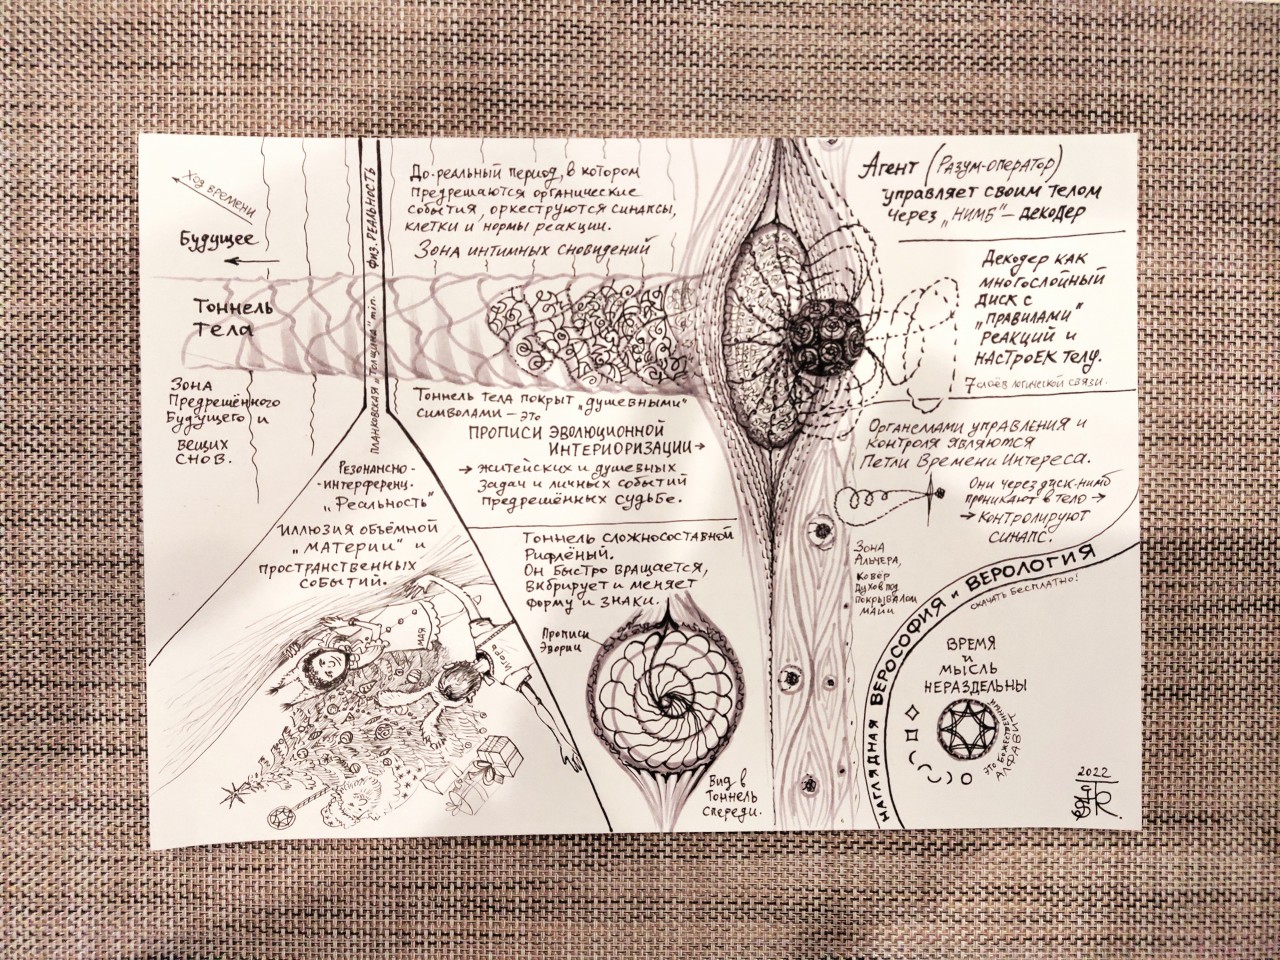 Ход времени
Будущее
Тоннель
тела
Зона
Предрешённого
Будущего и
вещих
снов.
физ. реальность
планковская "толщина" min.
До-реальный период, в котором
предрешаются органические
события, оркеструются синапсы,
клетки и нормы реакции.
Зона интимных сновидений
Тоннель тела покрыт „душевными"
символами – это
прописи эволюционной
интериоризации →
→ житейских и душевных
задач и личных событий
предрешённых судьбе.
Резонансно-
-интерференц.
„Реальность"
Иллюзия объёмной
„материи" и
пространственных
событий.
Мая
Игорь
Тоннель сложносоставной
Рифлёный.
Он быстро вращается,
вибрирует и меняет
форму и знаки.
Прописи
Эвории
Вид в
тоннель
спереди.
Агент (Разум-оператор)
управляет своим телом
через „нимб" – декодер
Декодер как
многослойный
диск с
„правилами"
реакций и
настроек телу.
7 слоёв логической связи.
Органеллами управления и
контроля являются
Петли Времени Интереса.
Они через диск-нимб
проникают в тело →
→ контролируют
синапс.
Зона
Альчера,
ковёр
Духов под
покрывалом
майи
Наглядная Верософия и Верология
скачать бесплатно!
Время
и
мысль
нераздельны
это божественный
алфавит
2022